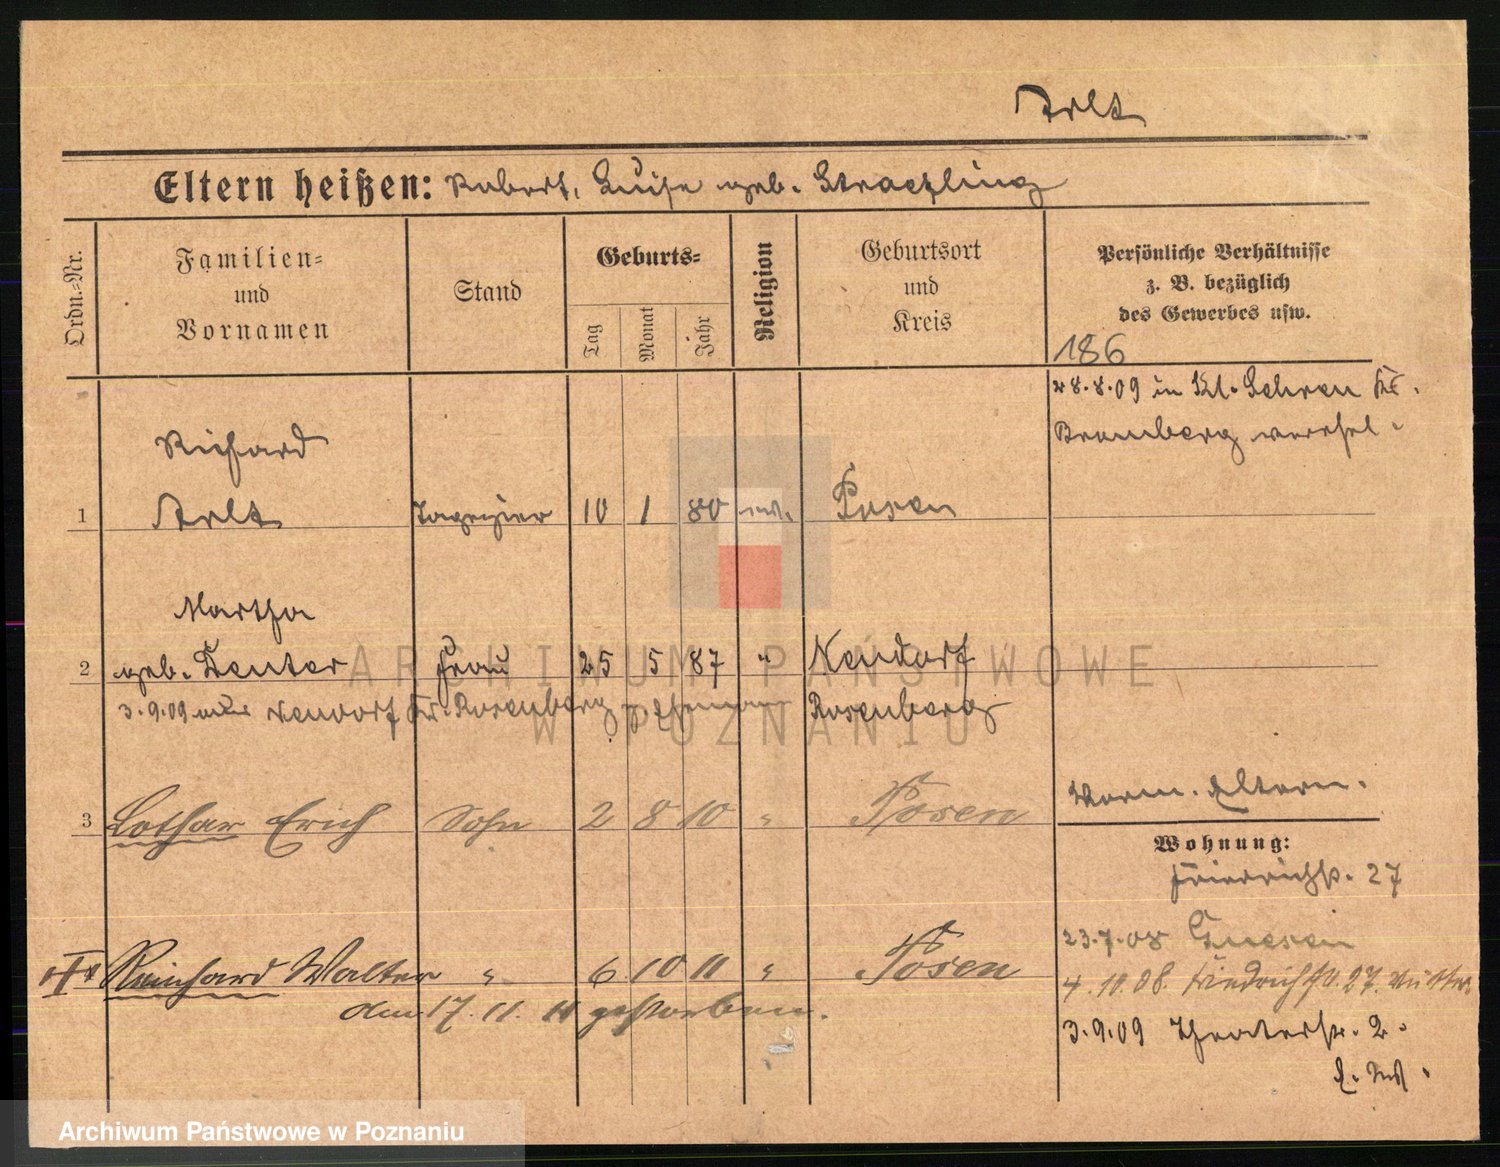 Arlt
Eltern heißen: Robert, Luise geb. Straezling
Ordn.-Nr.
Familien-
und
Vornamen
Stand
Geburts-
Tag
Monat
Jahr
Religion
Geburtsort
und
Kreis
Persönliche Verhältnisse
z. B. bezüglich
des Gewerbes usw.
186
28.8.09 in Kl. Kr.
Bromberg
Richard
1 Arlt Tapezier 10 1 80 ev. Posen
Martha
2 geb. Zenter Frau 25 5 87 " Neudorf
3.9.09 aus Neudorf Kr. Rosenberg z. Ehemann Rosenberg
3 Lothar Erich Sohn 2 8 10 " Posen
Verm. Eltern.
Wohnung:
Friedrichstr. 27
23.7.08 Gnesen
Reinhard Walter " 6 10 11 " Posen
4.10.08. Friedrichstr. 27. Mutter
den 17. 11. 11 gestorben.
3.9.09 Theaterstr. 2.
ARCHIWUM PAŃSTWOWE
W POZNANIU
Archiwum Państwowe w Poznaniu